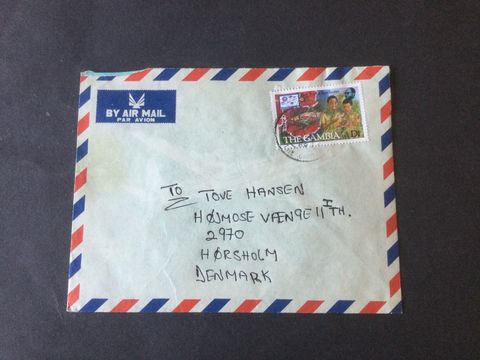 BY AIR MAIL
PAR AVION
THE GAMBIA
TO TOVE HANSEN
HØJMOSE VÆNGE 11 I TH.
2970
HØRSHOLM
DENMARK